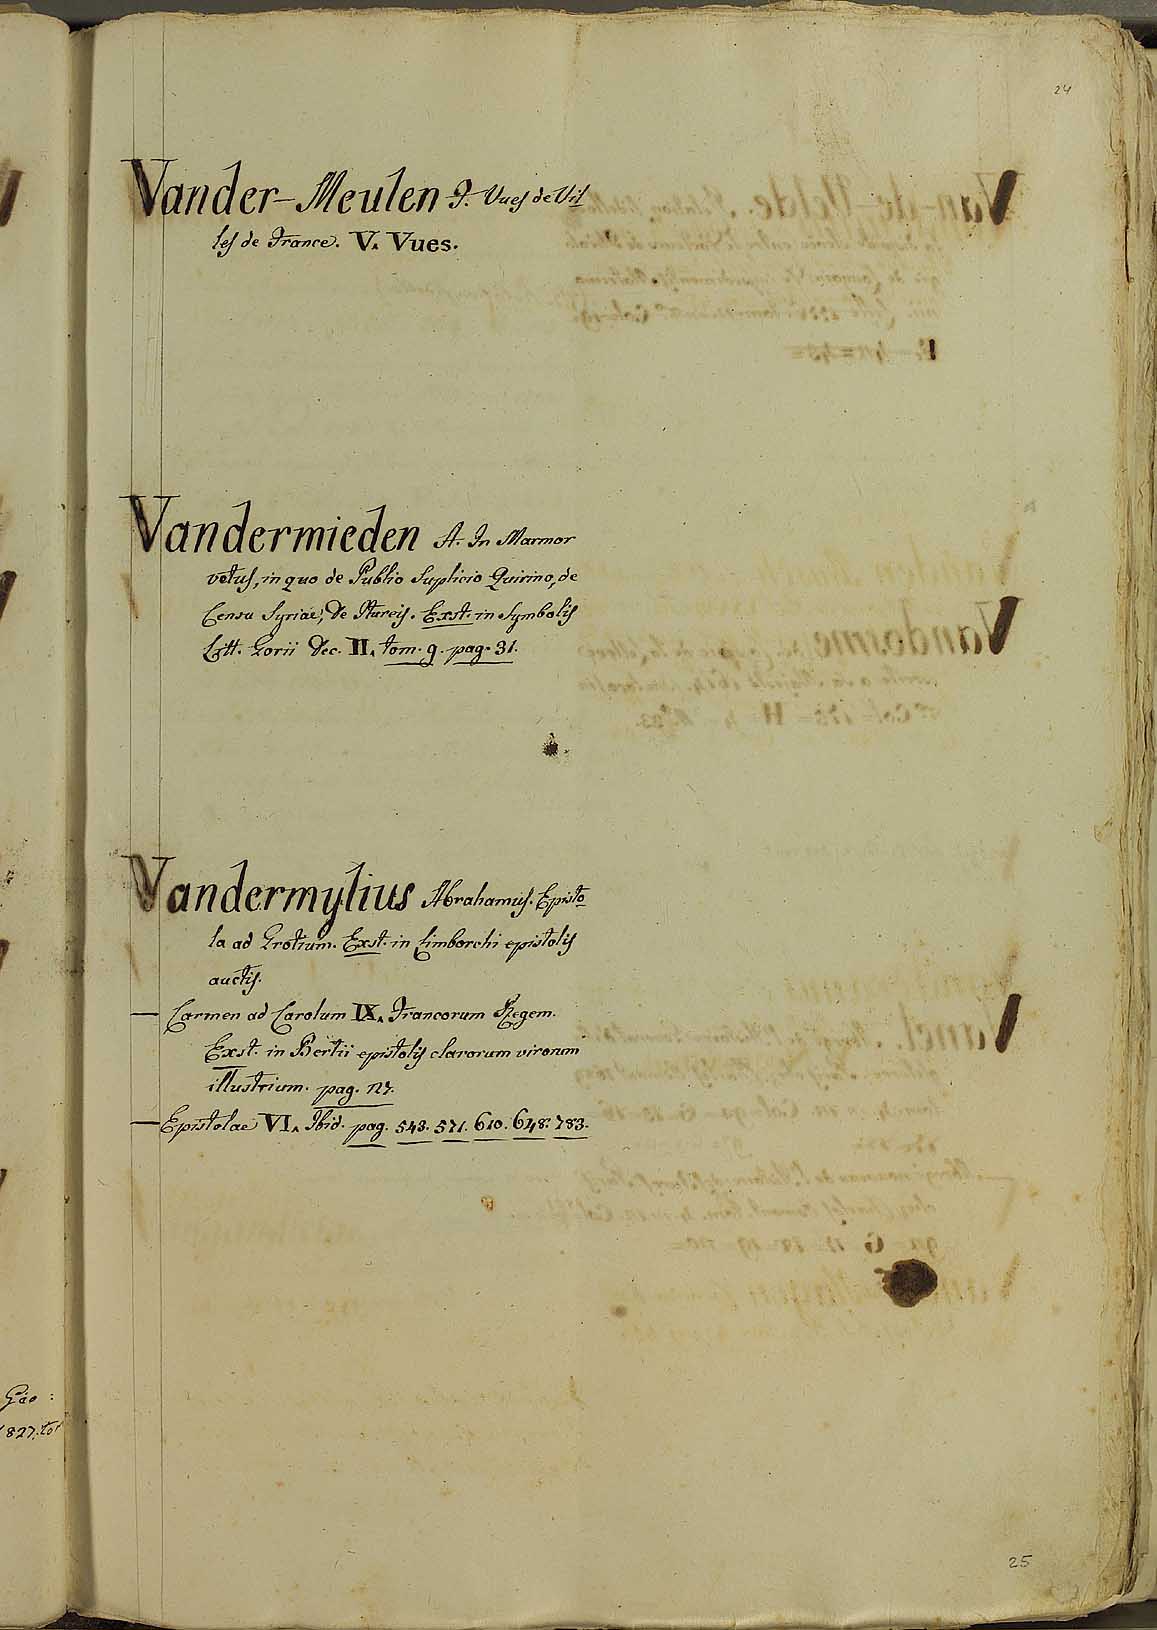 24
Vander-Meulen J. Vues de Vil
les de France. V. Vues.
Vandermieden A. In Marmor
vetus, in quo de Publio Suplicio Quirino, de
Censu Syriae, De Itureis. Exst. in Symbolis
Litt. Gorii Dec. II. tom. 9. pag. 31.
Vandermylius Abrahamus. Episto
la ad Grotium. Exst. in Limborchi epistolis
auctis.
— Carmen ad Carolum IX. Francorum Regem.
Exst. in Bertii epistolis clarorum virorum
illustrium. pag.
— Epistolae VI. Ibid. pag. 543. 571. 610. 648. 783.
Gao :
827. tor
25